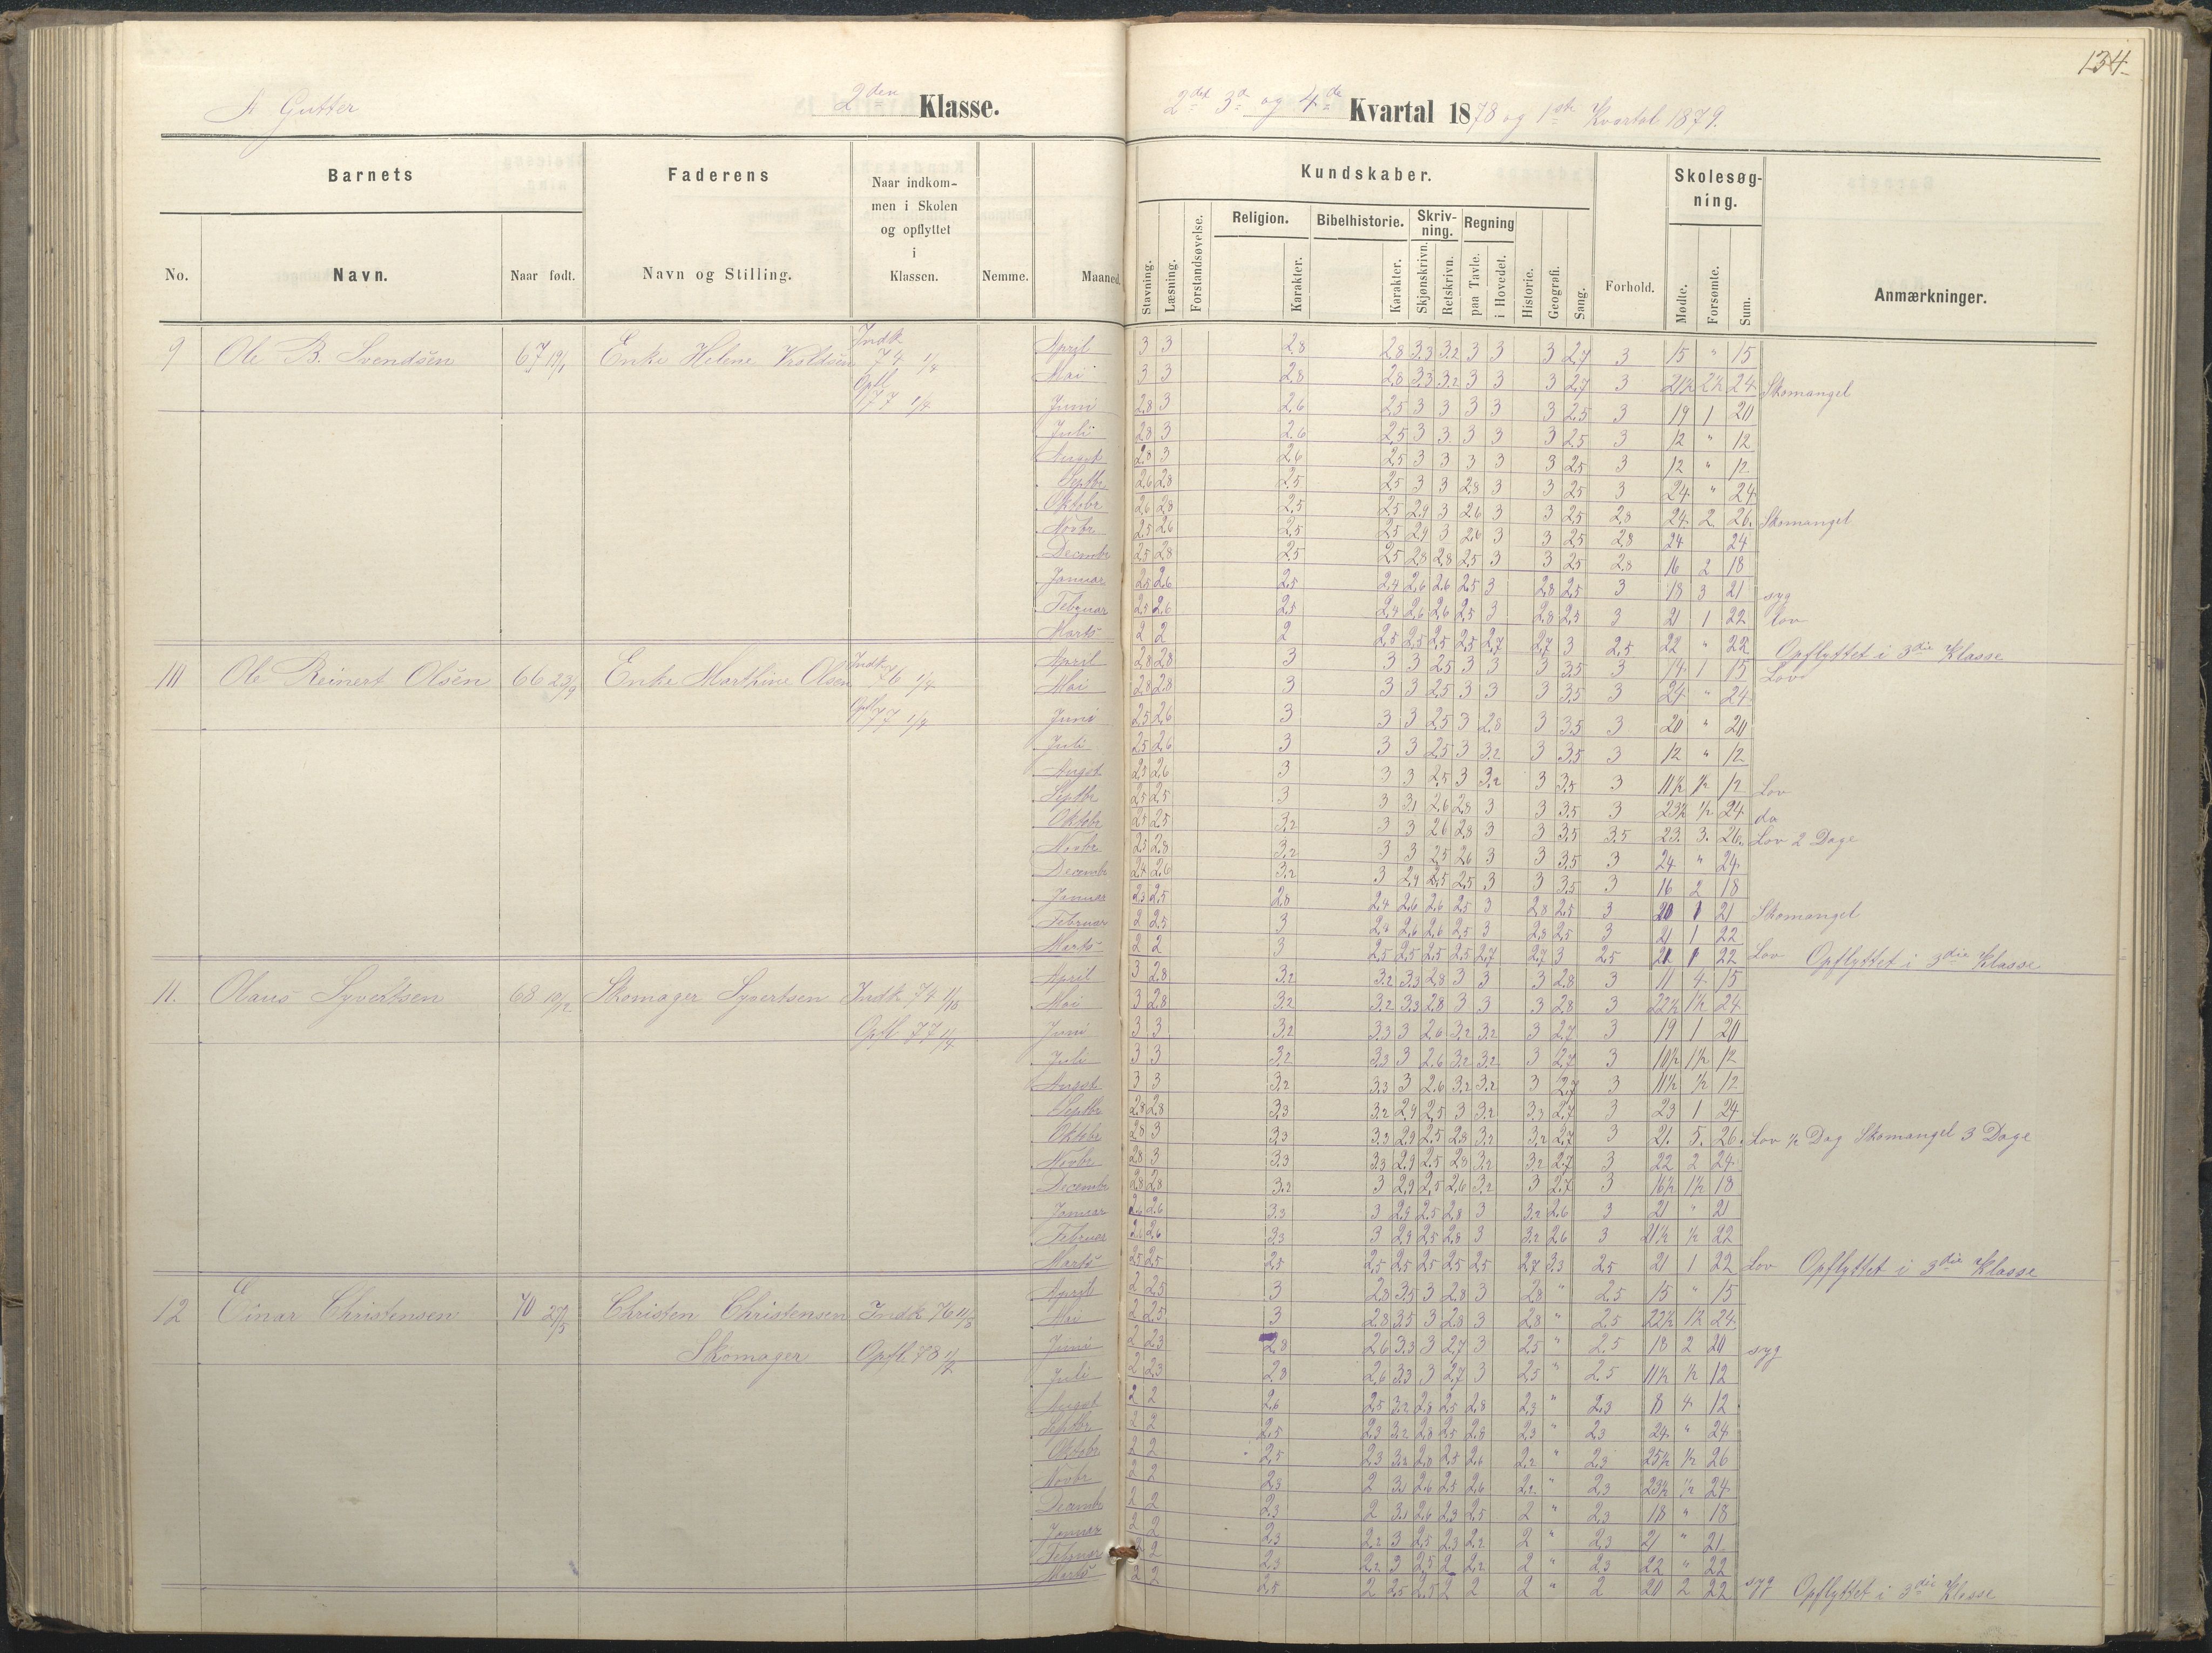 134.
A Gutter 2den Klasse. 2det 3de og 4de Kvartal 1878 og 1ste Kvartal 1879.
Barnets Faderens Naar indkommen i Skolen og opflyttet i Klassen. Nemme. Maaned.
No. Navn. Naar født. Navn og Stilling.
Kundskaber. Forhold. Skolesøgning. Anmærkninger.
Stavning. Læsning. Forstandsøvelse. Religion. Karakter. Bibelhistorie. Karakter. Skrivning. Skjønskrivn. Retskrivn. Regning paa Tavle. i Hovedet. Historie. Geografi. Sang. Mødte. Forsømte. Sum.
9 Ole B. Svendsen 67 19/1 Enke Helene Indk 74 1/8 April 3 3 2,8 2,8 3,3 3,2 3 3 3 2,7 3 15 " 15
Opfl 77 1/4 Mai 3 3 2,8 2,8 3,3 3,2 3 3 3 2,7 3 21½ 2½ 24 Skomangel
Juni 2,8 3 2,6 2,5 3 3 3 3 3 2,5 3 19 1 20
Juli 2,8 3 2,6 2,5 3 3 3 3 3 2,5 3 12 " 12
August 2,8 3 2,6 2,5 3 3 3 3 3 2,5 3 12 " 12
Septbr 2,6 2,8 2,5 2,5 3 3 2,8 3 3 2,5 3 24 " 24
Oktobr 2,6 2,8 2,5 2,5 2,9 3 2,6 3 3 2,5 2,8 24 2 26. Skomangel
Novbr 2,5 2,6 2,5 2,5 2,9 3 2,6 3 3 2,5 2,8 24 24
Decembr 2,5 2,8 2,5 2,5 2,8 2,8 2,5 3 3 2,5 2,8 16 2 18
Januar 2,5 2,6 2,5 2,4 2,6 2,6 2,5 3 2,8 2,5 3 18 3 21 syg
Februar 2,5 2,6 2,5 2,4 2,6 2,6 2,5 3 2,8 2,5 3 21 1 22 Lov
Marts 2 2 2 2,5 2,5 2,5 2,5 2,7 2,7 3 2,5 22 " 22 Opflyttet i 3die Klasse
10 Ole Reinert Olsen 66 23/9 Enke Marthine Olsen Indk 76 1/4 April 2,8 2,8 3 3 3 2,5 3 3 3 3,5 3 14 1 15 Lov
Opfl 77 1/4 Mai 2,8 2,8 3 3 3 2,5 3 3 3 3,5 3 24 " 24
Juni 2,5 2,6 3 3 3 2,5 3 2,8 3 3,5 3 20 " 20
Juli 2,5 2,6 3 3 3 2,5 3 3,2 3 3,5 3 12 " 12
August 2,5 2,6 3 3 3 2,5 3 3,2 3 3,5 3 11½ ½ 12 Lov
Septbr 2,5 2,5 3 3 3,1 2,6 2,8 3 3 3,5 3 23½ ½ 24 do
Oktobr 2,5 2,5 3,2 3 3 2,6 2,8 3 3 3,5 3,5 23. 3. 26. Lov 2 Dage
Novbr 2,5 2,8 3,2 3 3 2,5 2,6 3 3 3,5 3 24 " 24
Decembr 2,4 2,6 3,2 3 2,9 2,5 2,5 3 3 3,5 3 16 2 18
Januar 2,3 2,5 2,8 2,4 2,6 2,6 2,5 3 2,8 2,5 3 20 1 21 Skomangel
Februar 2 2,5 3 2,4 2,6 2,6 2,5 3 2,8 2,5 3 21 1 22
Marts 2 2 3 2,5 2,5 2,5 2,5 2,7 2,7 3 2,5 21 1 22 Lov Opflyttet i 3die Klasse
11. Olaus Syvertsen 68 10/12 Skomager Syvertsen Indk 74 1/10 April 3 2,8 3,2 3,2 3,3 2,8 3 3 3 2,8 3 11 4 15
Mai 3 2,8 3,2 3,2 3,3 2,8 3 3 3 2,8 3 22½ 1½ 24
Opfl 77 1/4 Juni 3 3 3,2 3,3 3 2,6 3,2 3,2 3 2,7 3 19 1 20
Juli 3 3 3,2 3,3 3 2,6 3,2 3,2 3 2,7 3 10½ 1½ 12
August 3 3 3,2 3,3 3 2,6 3,2 3,2 3 2,7 3 11½ ½ 12
Septbr 2,8 2,8 3,3 3,2 2,9 2,5 3 3,2 3,3 2,7 3 23 1 24
Oktobr 2,8 3 3,3 3,3 2,9 2,5 2,8 3,2 3,2 2,7 3 21. 5. 26. Lov ½ Dag Skomangel 3 Dage
Novbr 2,8 3 3,3 3,3 2,9 2,5 2,8 3,2 3,2 2,7 3 22 2 24
Decembr 2,8 2,8 3,2 3 2,9 2,5 2,6 3,2 3 2,7 3 16½ 1½ 18
Januar 2,6 2,6 3,3 3 2,9 2,5 2,8 3 3,2 2,6 3 21 " 21
Februar 2,6 2,6 3,3 3 2,9 2,5 2,8 3 3,2 2,6 3 21½ ½ 22
Marts 2,5 2,5 2,5 2,5 2,5 2,5 2,5 2,5 2,7 3,3 2,5 21 1 22 Lov Opflyttet i 3die Klasse
12 Einar Christensen 70 27/5 Christen Christensen Indk 76 April 2 2,5 3 2,8 3,5 3 2,8 3 2,8 " 2,5 15 " 15
Mai 2 2,5 3 2,8 3,5 3 2,8 3 2,8 " 2,5 22½ 1½ 24
Skomager Opfl. 78 Juni 2 2,3 2,8 2,6 3,3 3 2,7 3 2,5 " 2,5 18 2 20 syg
Juli 2 2,3 2,8 2,6 3,3 3 2,7 3 2,5 " 2,5 11½ ½ 12
August 2 2 2,6 2,5 3,2 2,8 2,5 2,8 2,3 " 2,3 8 4 12
Septbr 2 2 2,5 2,3 3,2 2,8 2,5 2,8 2,3 " 2,3 24 " 24
Oktobr 2 2 2,5 2,3 3,2 2,8 2,5 2,6 2,2 " 2,3 25½ ½ 26
Novbr 2 2 2,3 2 3,1 2,6 2,5 2,6 2,2 " 2,3 23½ ½ 24
Decembr 2 2 2,3 2 3,1 2,6 2,3 2,5 2 " 2,3 18 " 18
Januar 2 2 2,3 2,2 3 2,5 2,3 2,2 2 " 2,3 21 " 21
Februar 2 2 2,3 2,2 3 2,5 2 2,2 2 " 2,3 22 " 22
Marts 2 2 2,5 2 2,5 2,5 2 2 2 " 2 20 2 22 syg Opflyttet i 3die Klasse